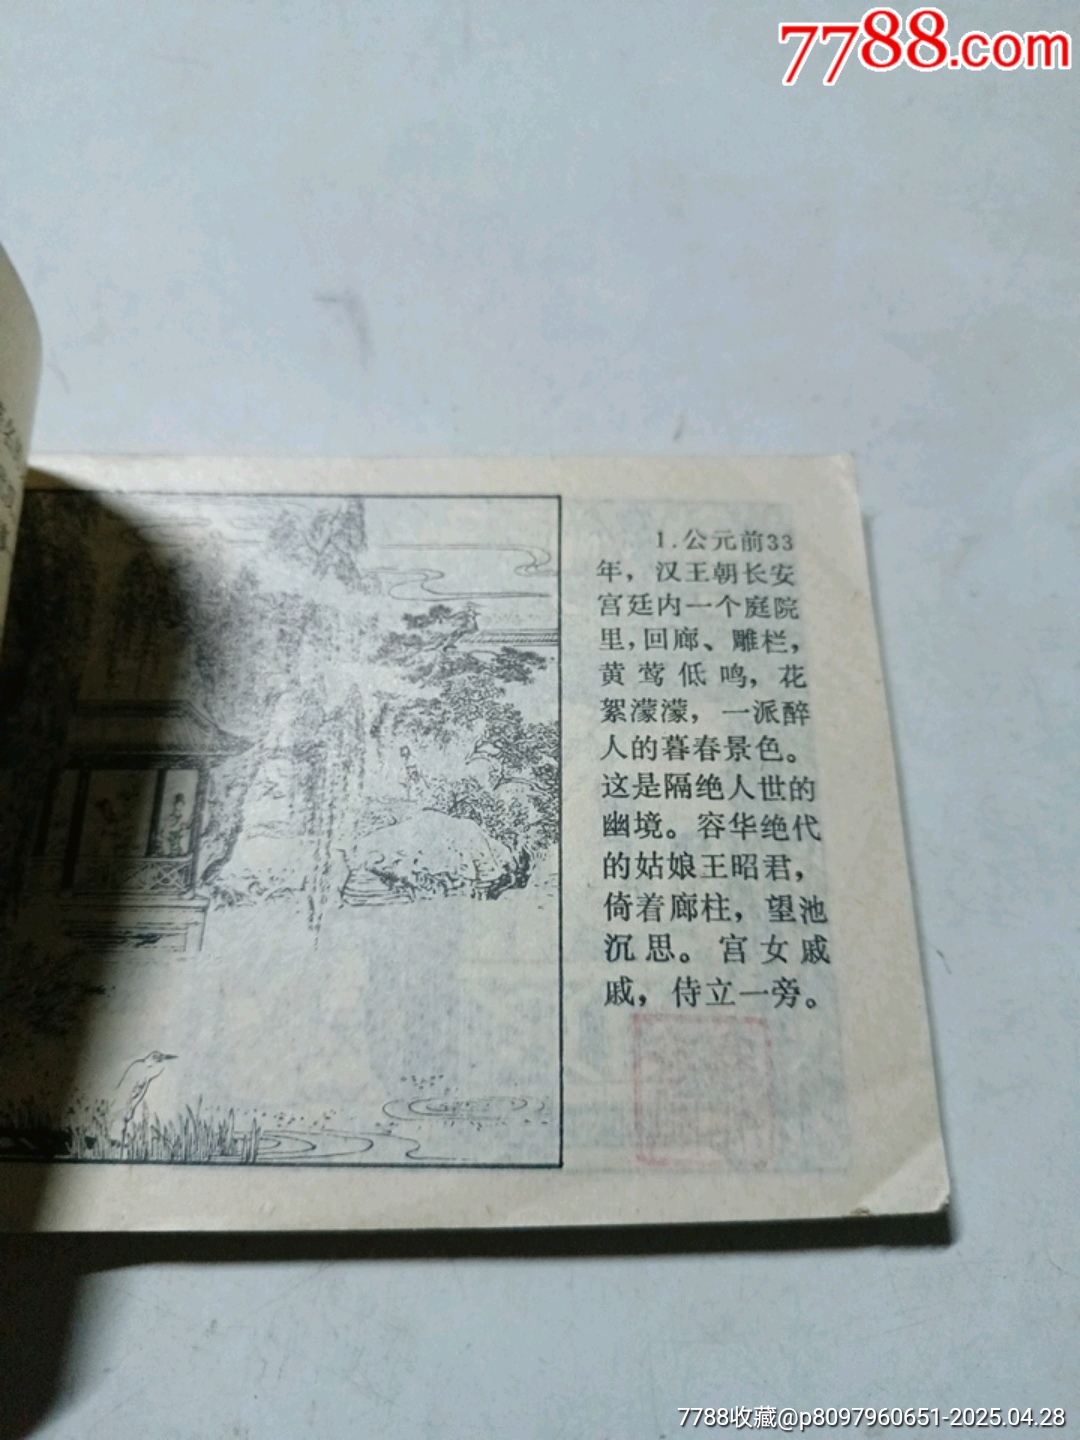 7788.com
1.公元前33
年，汉王朝长安
宫廷内一个庭院
里，回廊、雕栏，
黄莺低鸣，花
絮濛濛，一派醉
人的暮春景色。
这是隔绝人世的
幽境。容华绝代
的姑娘王昭君，
倚着廊柱，望池
沉思。宫女戚
戚，侍立一旁。
7788收藏@p8097960651-2025.04.28